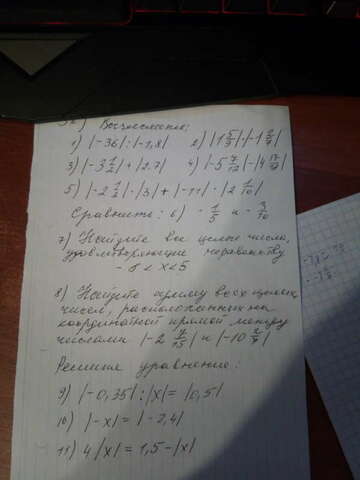 Вычислите:
1) |-36| : |-1,8| 2) |1 5/9| · |-1 2/7|
3) |-3 1/2| + |2.7| 4) |-5 7/12| - |4 17/12|
5) |-2 1/2| · |3| + |-11| · |2 1/10|
Сравнить: 6) -1/5 и -3/10
7) Найдите все целые числа,
удовлетворяющие неравенству
-8 < x < 5
8) Найдите сумму всех целых
чисел, расположенных на
координатной прямой между
числами |-2 7/15| и |-10 2/7|
Решите уравнение:
9) |-0,35| : |x| = |0,5|
10) |-x| = |-2,4|
11) 4|x| = 1,5 - |x|